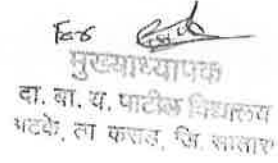 मुख्याध्यापक
दा. बा. य. पाटील विद्यालय
ता कराड, जि. सातारा